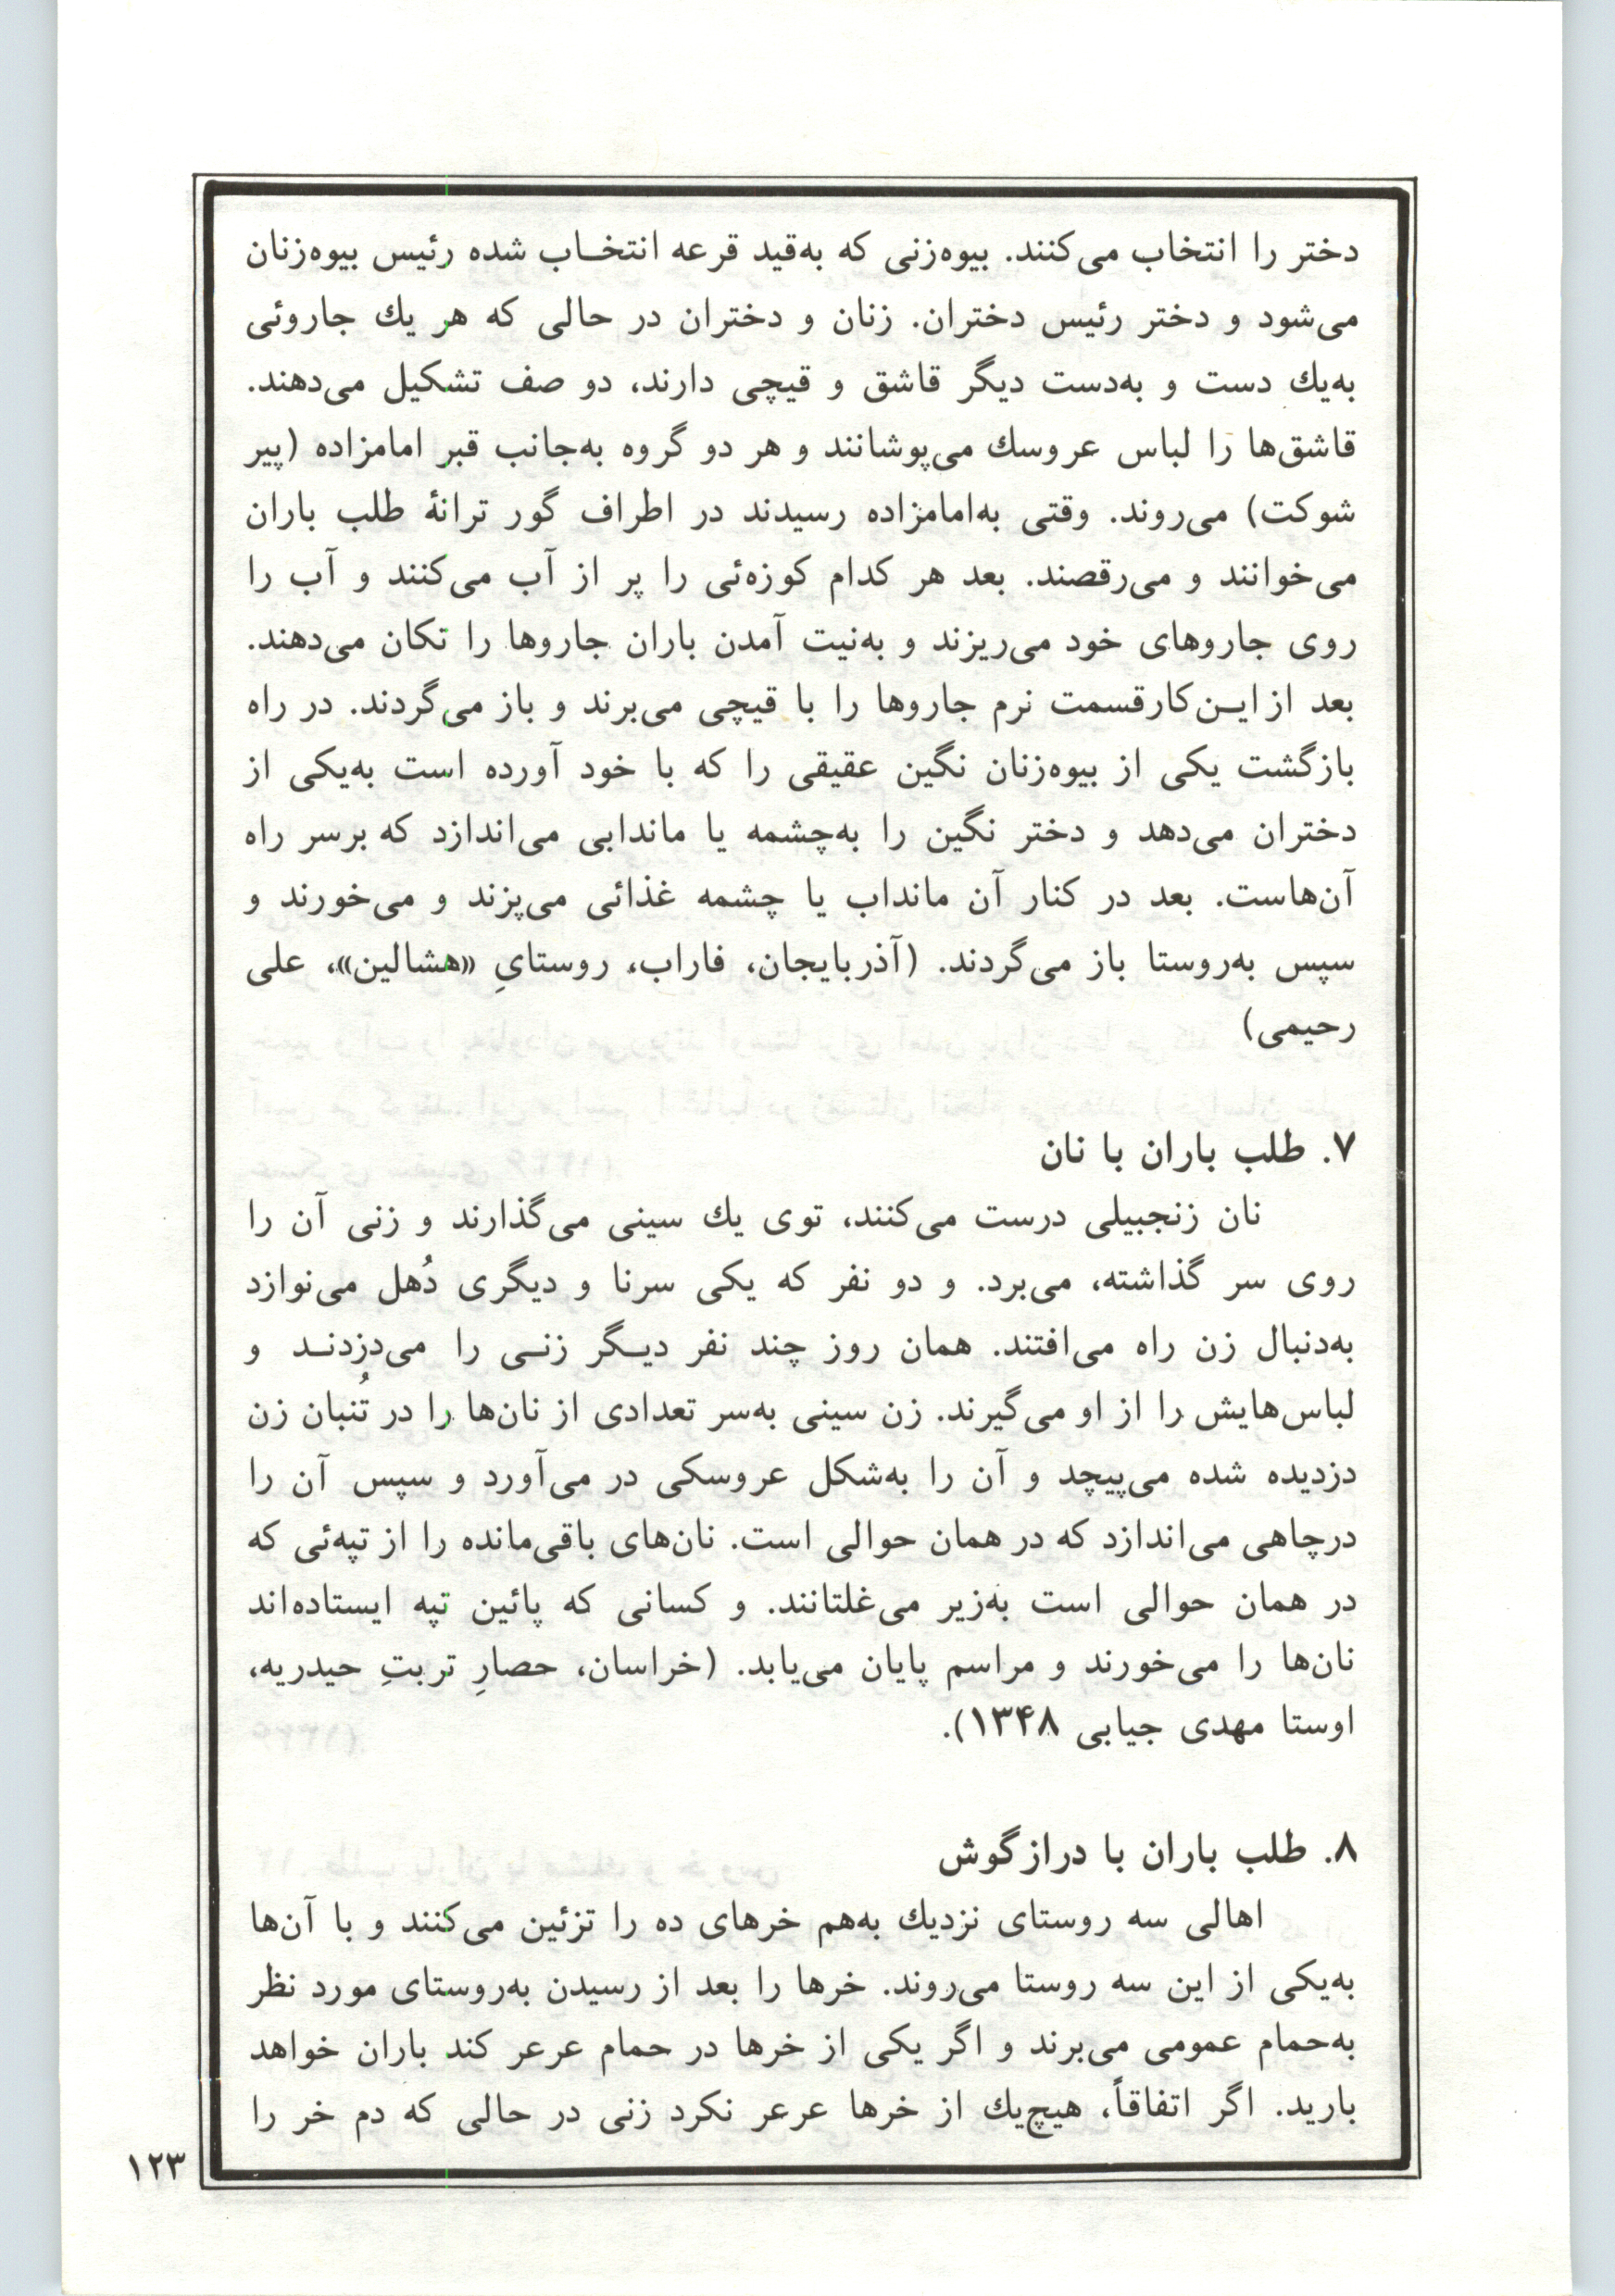 دختر را انتخاب می‌کنند. بیوه‌زنی که به‌قید قرعه انتخاب شده رئیس بیوه‌زنان
می‌شود و دختر رئیس دختران. زنان و دختران در حالی که هر یك جاروئی
به‌یك دست و به‌دست دیگر قاشق و قیچی دارند، دو صف تشکیل می‌دهند.
قاشق‌ها را لباس عروسك می‌پوشانند و هر دو گروه به‌جانب قبر امامزاده (پیر
شوکت) می‌روند. وقتی به‌امامزاده رسیدند در اطراف گور ترانهٔ طلب باران
می‌خوانند و می‌رقصند. بعد هر کدام کوزه‌ئی را پر از آب می‌کنند و آب را
روی جاروهای خود می‌ریزند و به‌نیت آمدن باران جاروها را تکان می‌دهند.
بعد از این‌کار قسمت نرم جاروها را با قیچی می‌برند و باز می‌گردند. در راه
بازگشت یکی از بیوه‌زنان نگین عقیقی را که با خود آورده است به‌یکی از
دختران می‌دهد و دختر نگین را به‌چشمه یا ماندابی می‌اندازد که برسر راه
آن‌هاست. بعد در کنار آن مانداب یا چشمه غذائی می‌پزند و می‌خورند و
سپس به‌روستا باز می‌گردند. (آذربایجان، فاراب، روستایِ «هشالین»، علی
رحیمی)
۷. طلب باران با نان
نان زنجبیلی درست می‌کنند، توی یك سینی می‌گذارند و زنی آن را
روی سر گذاشته، می‌برد. و دو نفر که یکی سرنا و دیگری دُهل می‌نوازد
به‌دنبال زن راه می‌افتند. همان روز چند نفر دیگر زنی را می‌دزدند و
لباس‌هایش را از او می‌گیرند. زن سینی به‌سر تعدادی از نان‌ها را در تُنبان زن
دزدیده شده می‌پیچد و آن را به‌شکل عروسکی در می‌آورد و سپس آن را
درچاهی می‌اندازد که در همان حوالی است. نان‌های باقی‌مانده را از تپه‌ئی که
در همان حوالی است به‌زیر می‌غلتانند. و کسانی که پائین تپه ایستاده‌اند
نان‌ها را می‌خورند و مراسم پایان می‌یابد. (خراسان، حصارِ تربتِ حیدریه،
اوستا مهدی جیابی ۱۳۴۸).
۸. طلب باران با درازگوش
اهالی سه روستای نزدیك به‌هم خرهای ده را تزئین می‌کنند و با آن‌ها
به‌یکی از این سه روستا می‌روند. خرها را بعد از رسیدن به‌روستای مورد نظر
به‌حمام عمومی می‌برند و اگر یکی از خرها در حمام عرعر کند باران خواهد
بارید. اگر اتفاقاً، هیچ‌یك از خرها عرعر نکرد زنی در حالی که دم خر را
۱۲۳